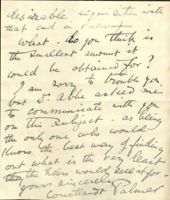 desirable acquisition with
that end in
What do you think is
the smallest amount it
could be obtained for?
I am sorry to trouble you
but Abbe asked me
to communicate with you
on this subject - as being
the only one who would
know the best way of finding
out what is the very least
they the heirs would accept for -
yours sincerely
Courtlandt Palmer